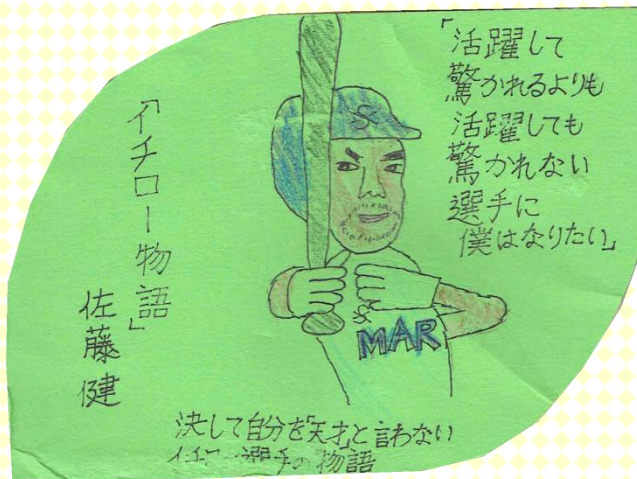 「活躍して
驚かれるよりも
活躍しても
驚かれない
選手に
僕はなりたい」
「イチロー物語」
佐藤健
S
S
MAR
決して自分を「天才」と言わない
イチロー選手の物語